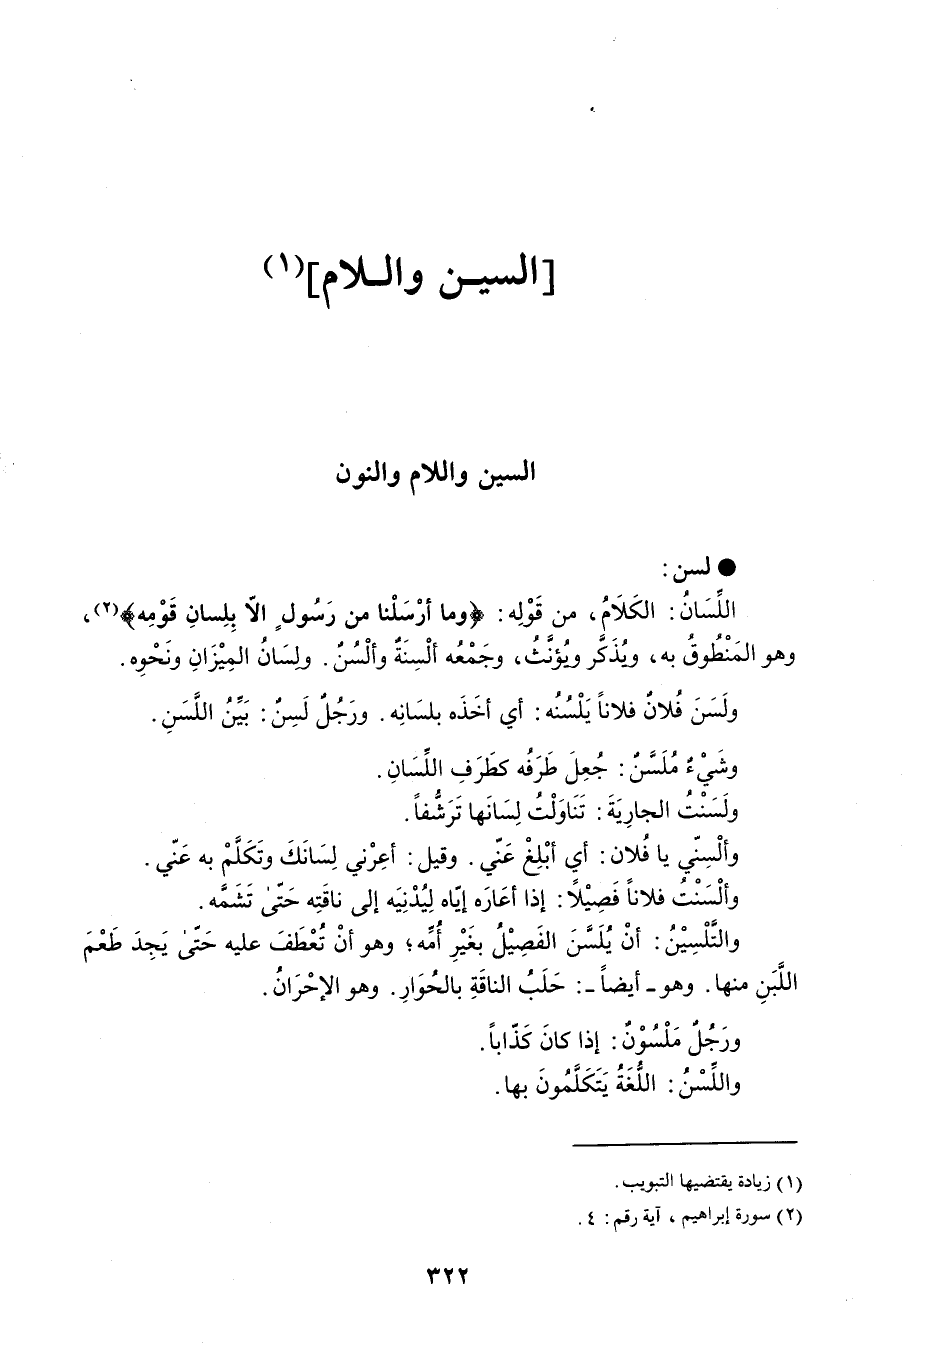 [السيـن والـلام](١)
السين واللام والنون
● لسن :
اللِّسَانُ : الكَلَامُ، من قَوْلِه : ﴿وما أرْسَلْنا من رَسُولٍ الاّ بِلِسانِ قَوْمِه﴾(٢)،
وهو المَنْطُوقُ به، ويُذَكَّر ويُؤنَّثُ، وجَمْعُه ألْسِنَةٌ وألْسُنٌ. ولِسَانُ المِيْزَانِ ونَحْوِه.
ولَسَنَ فُلانٌ فلاناً يَلْسُنُه : أي أخَذَه بلسَانِه. ورَجُلٌ لَسِنٌ : بَيِّنُ اللَّسَنِ.
وشَيْءٌ مُلَسَّنٌ : جُعِلَ طَرَفُه كطَرَفِ اللِّسَانِ.
ولَسَنْتُ الجارِيَةَ : تَنَاوَلْتُ لِسَانَها تَرَشُّفاً.
وألْسِنّي يا فُلان : أي أبْلِغْ عَنّي. وقيل : أعِرْني لِسَانَكَ وتَكَلَّمْ به عَنّي.
وألْسَنْتُ فلاناً فَصِيْلًا : إذا أعَارَه إيّاه لِيُدْنِيَه إلى ناقَتِه حَتّىٰ تَشَمَّه.
والتَّلْسِيْنُ : أنْ يُلَسَّنَ الفَصِيْلُ بغَيْرِ أُمِّه؛ وهو أنْ تُعْطَفَ عليه حَتّىٰ يَجِدَ طَعْمَ
اللَّبَنِ منها. وهو ـ أيضاً ـ : حَلَبُ الناقَةِ بالحُوَارِ. وهو الإحْرَانُ.
ورَجُلٌ مَلْسُوْنٌ : إذا كانَ كَذّاباً.
واللِّسْنُ : اللُّغَةُ يَتَكَلَّمُونَ بها.
(١) زيادة يقتضيها التبويب.
(٢) سورة إبراهيم، آية رقم : ٤.
٣٢٢